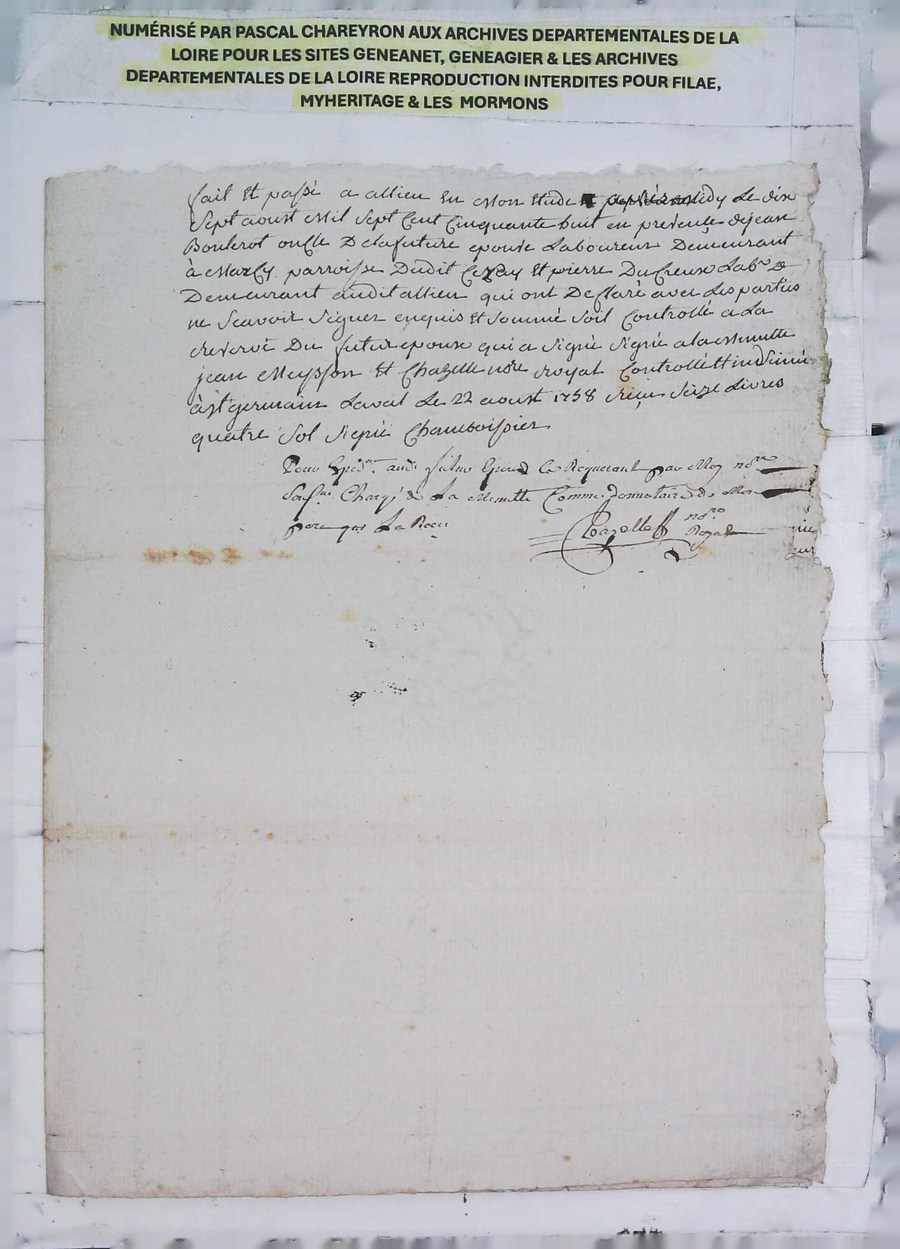 NUMÉRISÉ PAR PASCAL CHAREYRON AUX ARCHIVES DEPARTEMENTALES DE LA
LOIRE POUR LES SITES GENEANET, GENEAGIER & LES ARCHIVES
DEPARTEMENTALES DE LA LOIRE REPRODUCTION INTERDITES POUR FILAE,
MYHERITAGE & LES MORMONS
fait et passé a allieu en mon etude le dix
Sept aoust mil Sept Cent Cinquante huit en presence dejean
oncle De lafuture epouse Laboureur Demeurant
à Marcy parroisse Dudit Cezay et pierre Du Creux Labr &
Demeurant audit allieu qui ont Declaré avec Les parties
ne Scavoir Signer enquis et Sommé Soit Controllé a La
reserve Du futur epoux qui a Signé Signé a la minutte
jean Meysson et Chazelle nore royal Controllé et insinué
à st germain Laval Le 22 aoust 1758 reçu Seize Livres
quatre Sol Signé Chamboissier
Pour Expedn. aud. futur Epoux Ce Requerant par Moy nore
Chargé de La Minutte Comme donnataire de Mon
pere
Chazelle nore
Royal